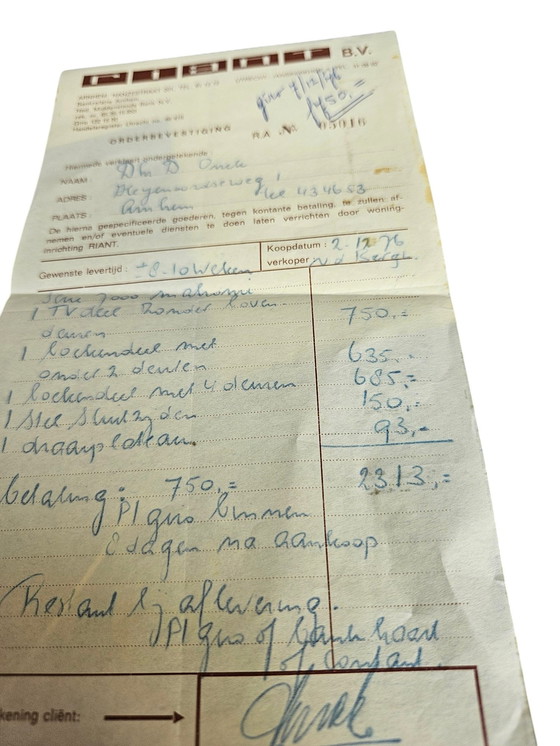 RIANT B.V.
giro 9/12/76
750,=
ORDERBEVESTIGING R.A. №
Hiermede verklaart ondergetekende
NAAM: Dhr D
ADRES:
PLAATS: Arnhem
De hierna gespecificeerde goederen, tegen kontante betaling, te zullen af-
nemen en/of eventuele diensten te doen laten verrichten door woning-
inrichting RIANT.
Gewenste levertijd: ± 8-10 weken
Koopdatum: 2-12-76
verkoper v d Bergh.
1 TV deel zonder boven- 750,=
deuren
1 boekendeel met 635,-
onder 2 deuren
1 boekendeel met 4 deuren 685,=
1 stel sluitzijden 150,-
1 draaiplateau. 93,-
betaling: 750,= 2313,=
P/giro binnen
8 dagen na aankoop
Restant bij aflevering.
P/giro of bank kaart
of contant.
kening cliënt: